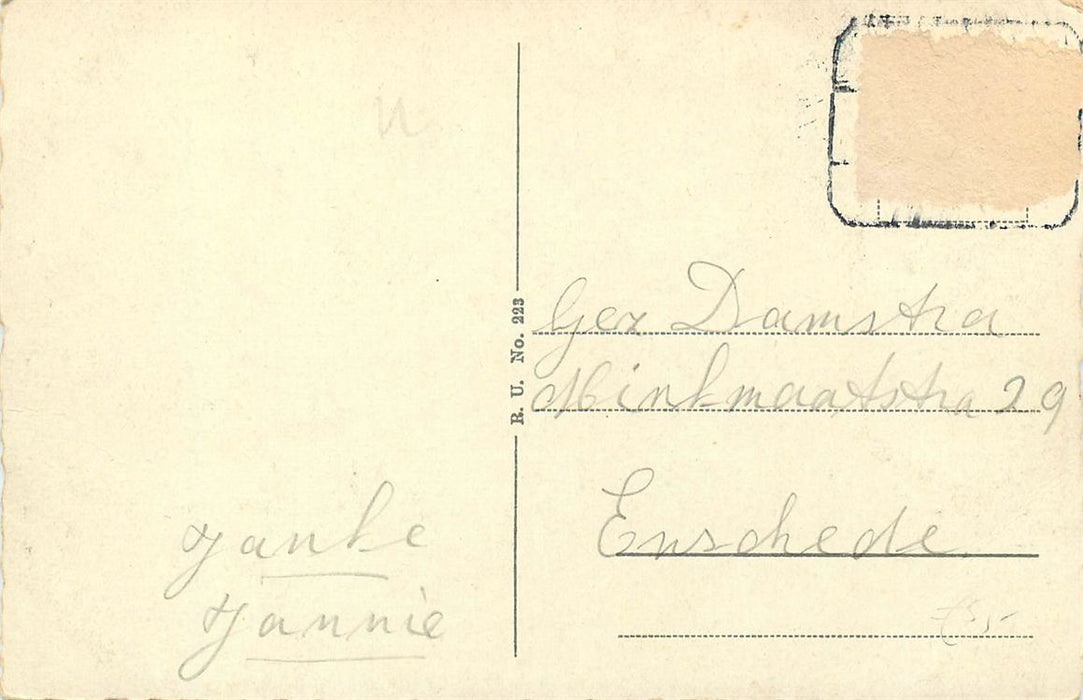 Janke
Jannie
R. U. No. 223
Gez Damstra
Minkmaatstra 29
Enschede